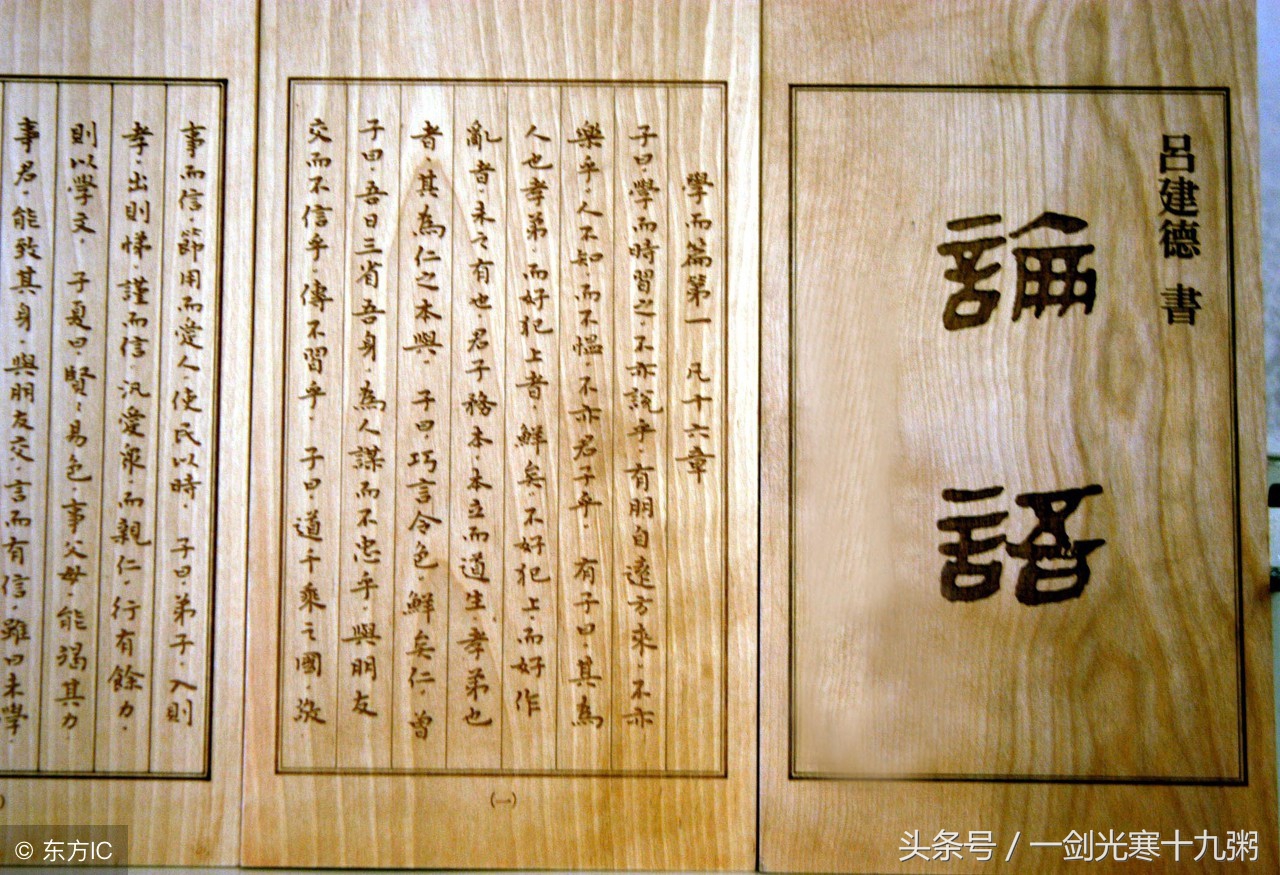 呂建德 書
論語
學而篇第一 凡十六章
子曰.學而時習之.不亦說乎.有朋自遠方來.不亦
樂乎.人不知.而不慍.不亦君子乎. 有子曰.其為
人也孝弟.而好犯上者.鮮矣.不好犯上.而好作
亂者.未之有也.君子務本.本立而道生.孝弟也
者.其為仁之本與. 子曰.巧言令色.鮮矣仁.曾
子曰.吾日三省吾身.為人謀而不忠乎.與朋友
交而不信乎.傳不習乎. 子曰.道千乘之國.敬
(一)
事而信.節用而愛人.使民以時. 子曰.弟子.入則
孝.出則悌.謹而信.汎愛眾.而親仁.行有餘力.
則以學文. 子夏曰.賢〻易色.事父母.能竭其力
事君.能致其身.與朋友交.言而有信.雖曰未學.
© 东方IC
头条号 / 一剑光寒十九粥